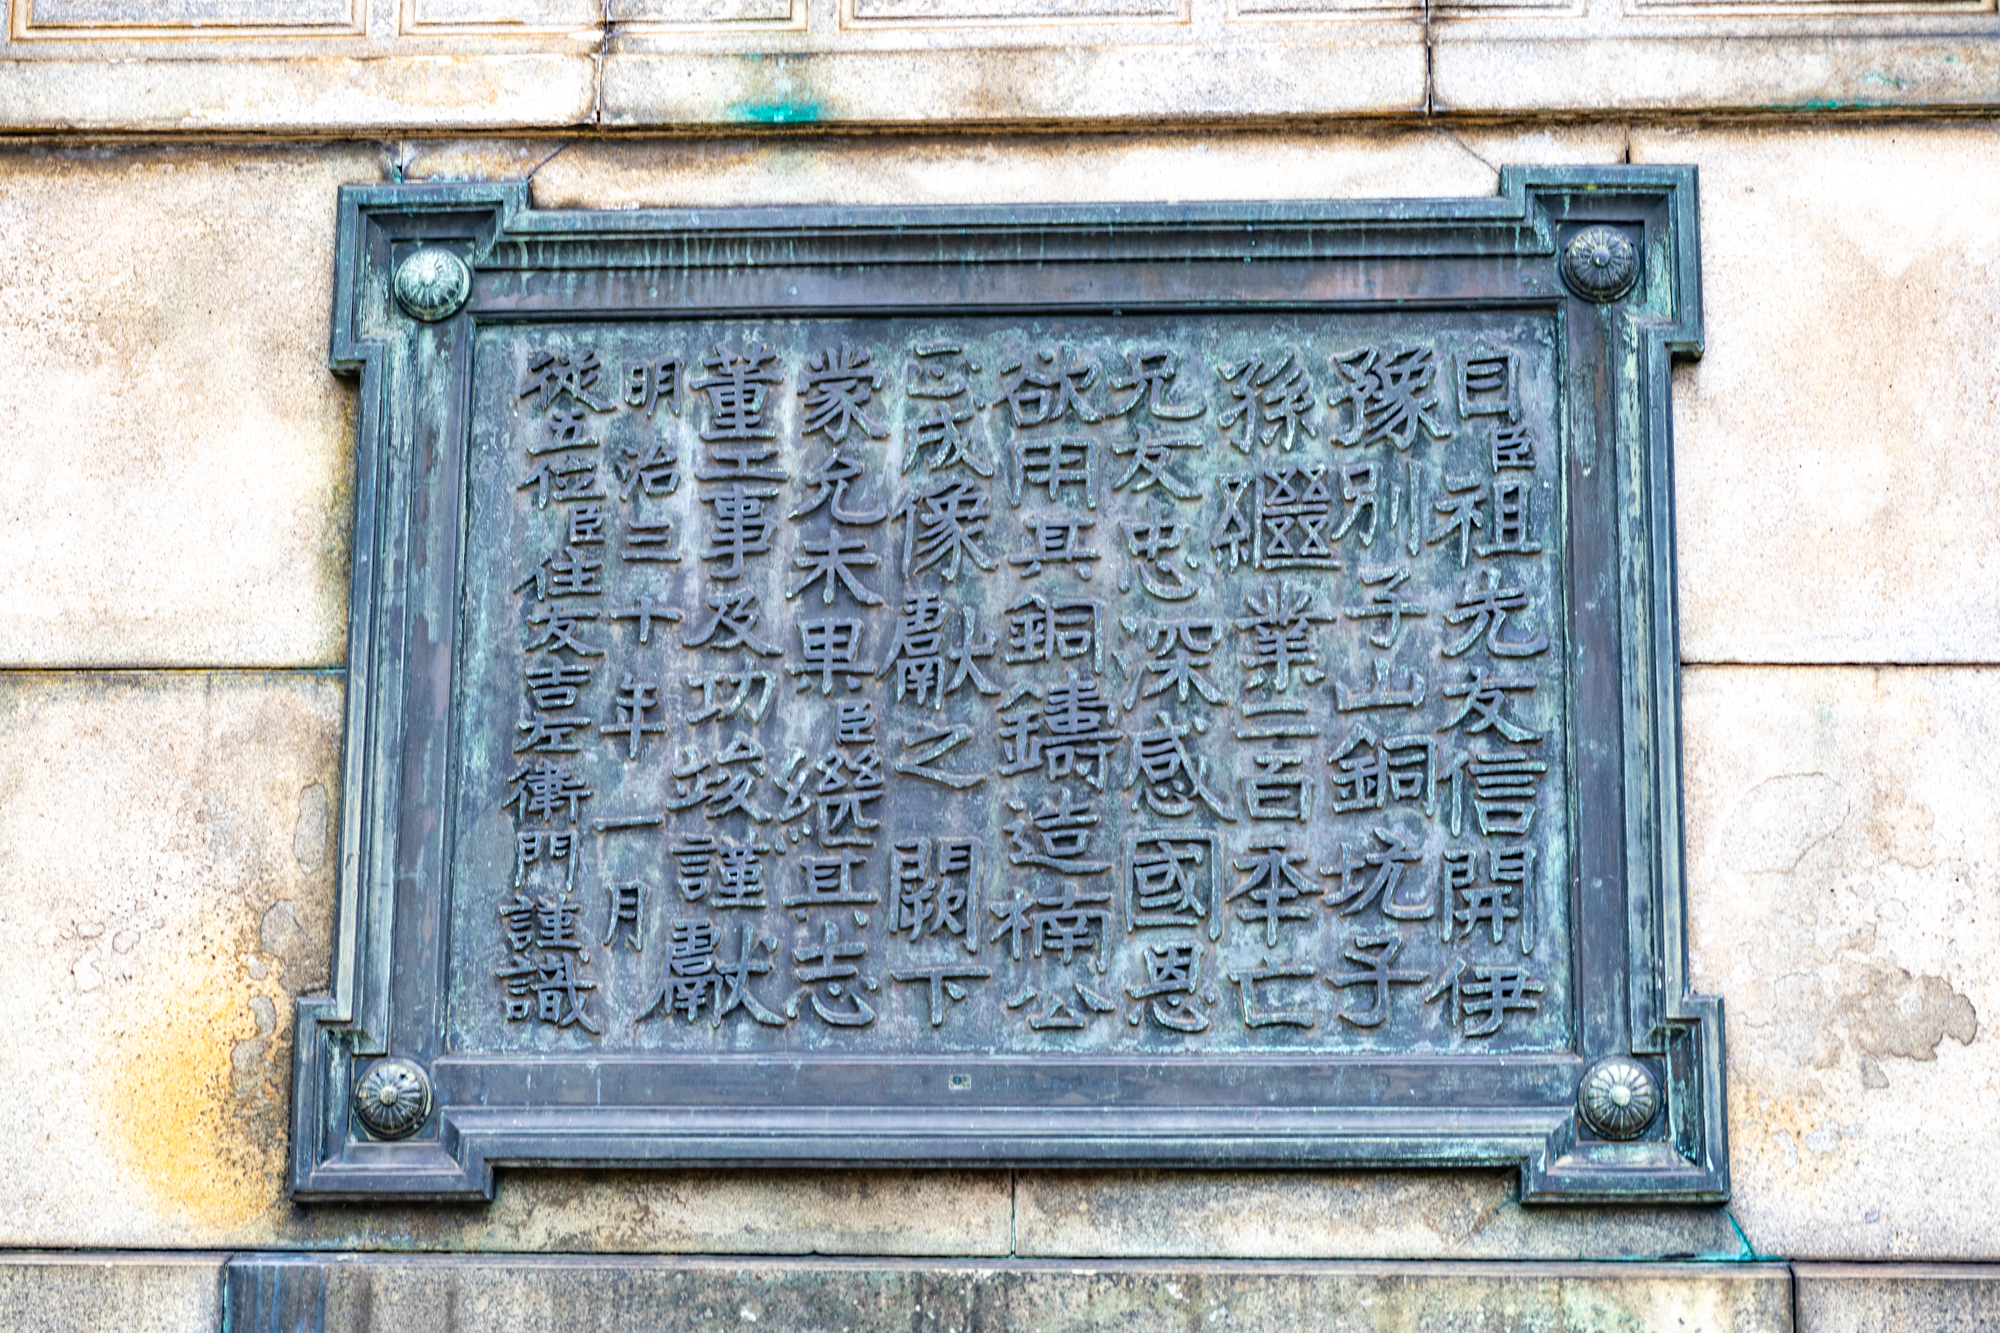 曰臣祖先友信開伊
豫別子山銅坑子
孫繼業二百年亡
兄友忠深感國恩
欲用其銅鑄造楠公
正成像獻之闕下
蒙允未果臣繼其志
董工事及功竣謹獻
明治三十年一月
從五位臣住友吉左衛門謹識